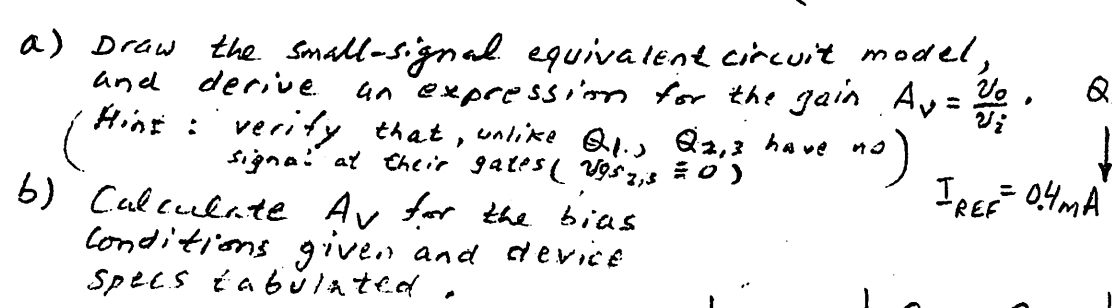 a) Draw the small-signal equivalent circuit model,
and derive an expression for the gain Av = vo/vi.
(Hint : verify that, unlike Q1, Q2,3 have no
signal at their gates (vgs2,3 ≡ 0))
b) Calculate Av for the bias
conditions given and device
specs tabulated.
Q
IREF = 0.4mA